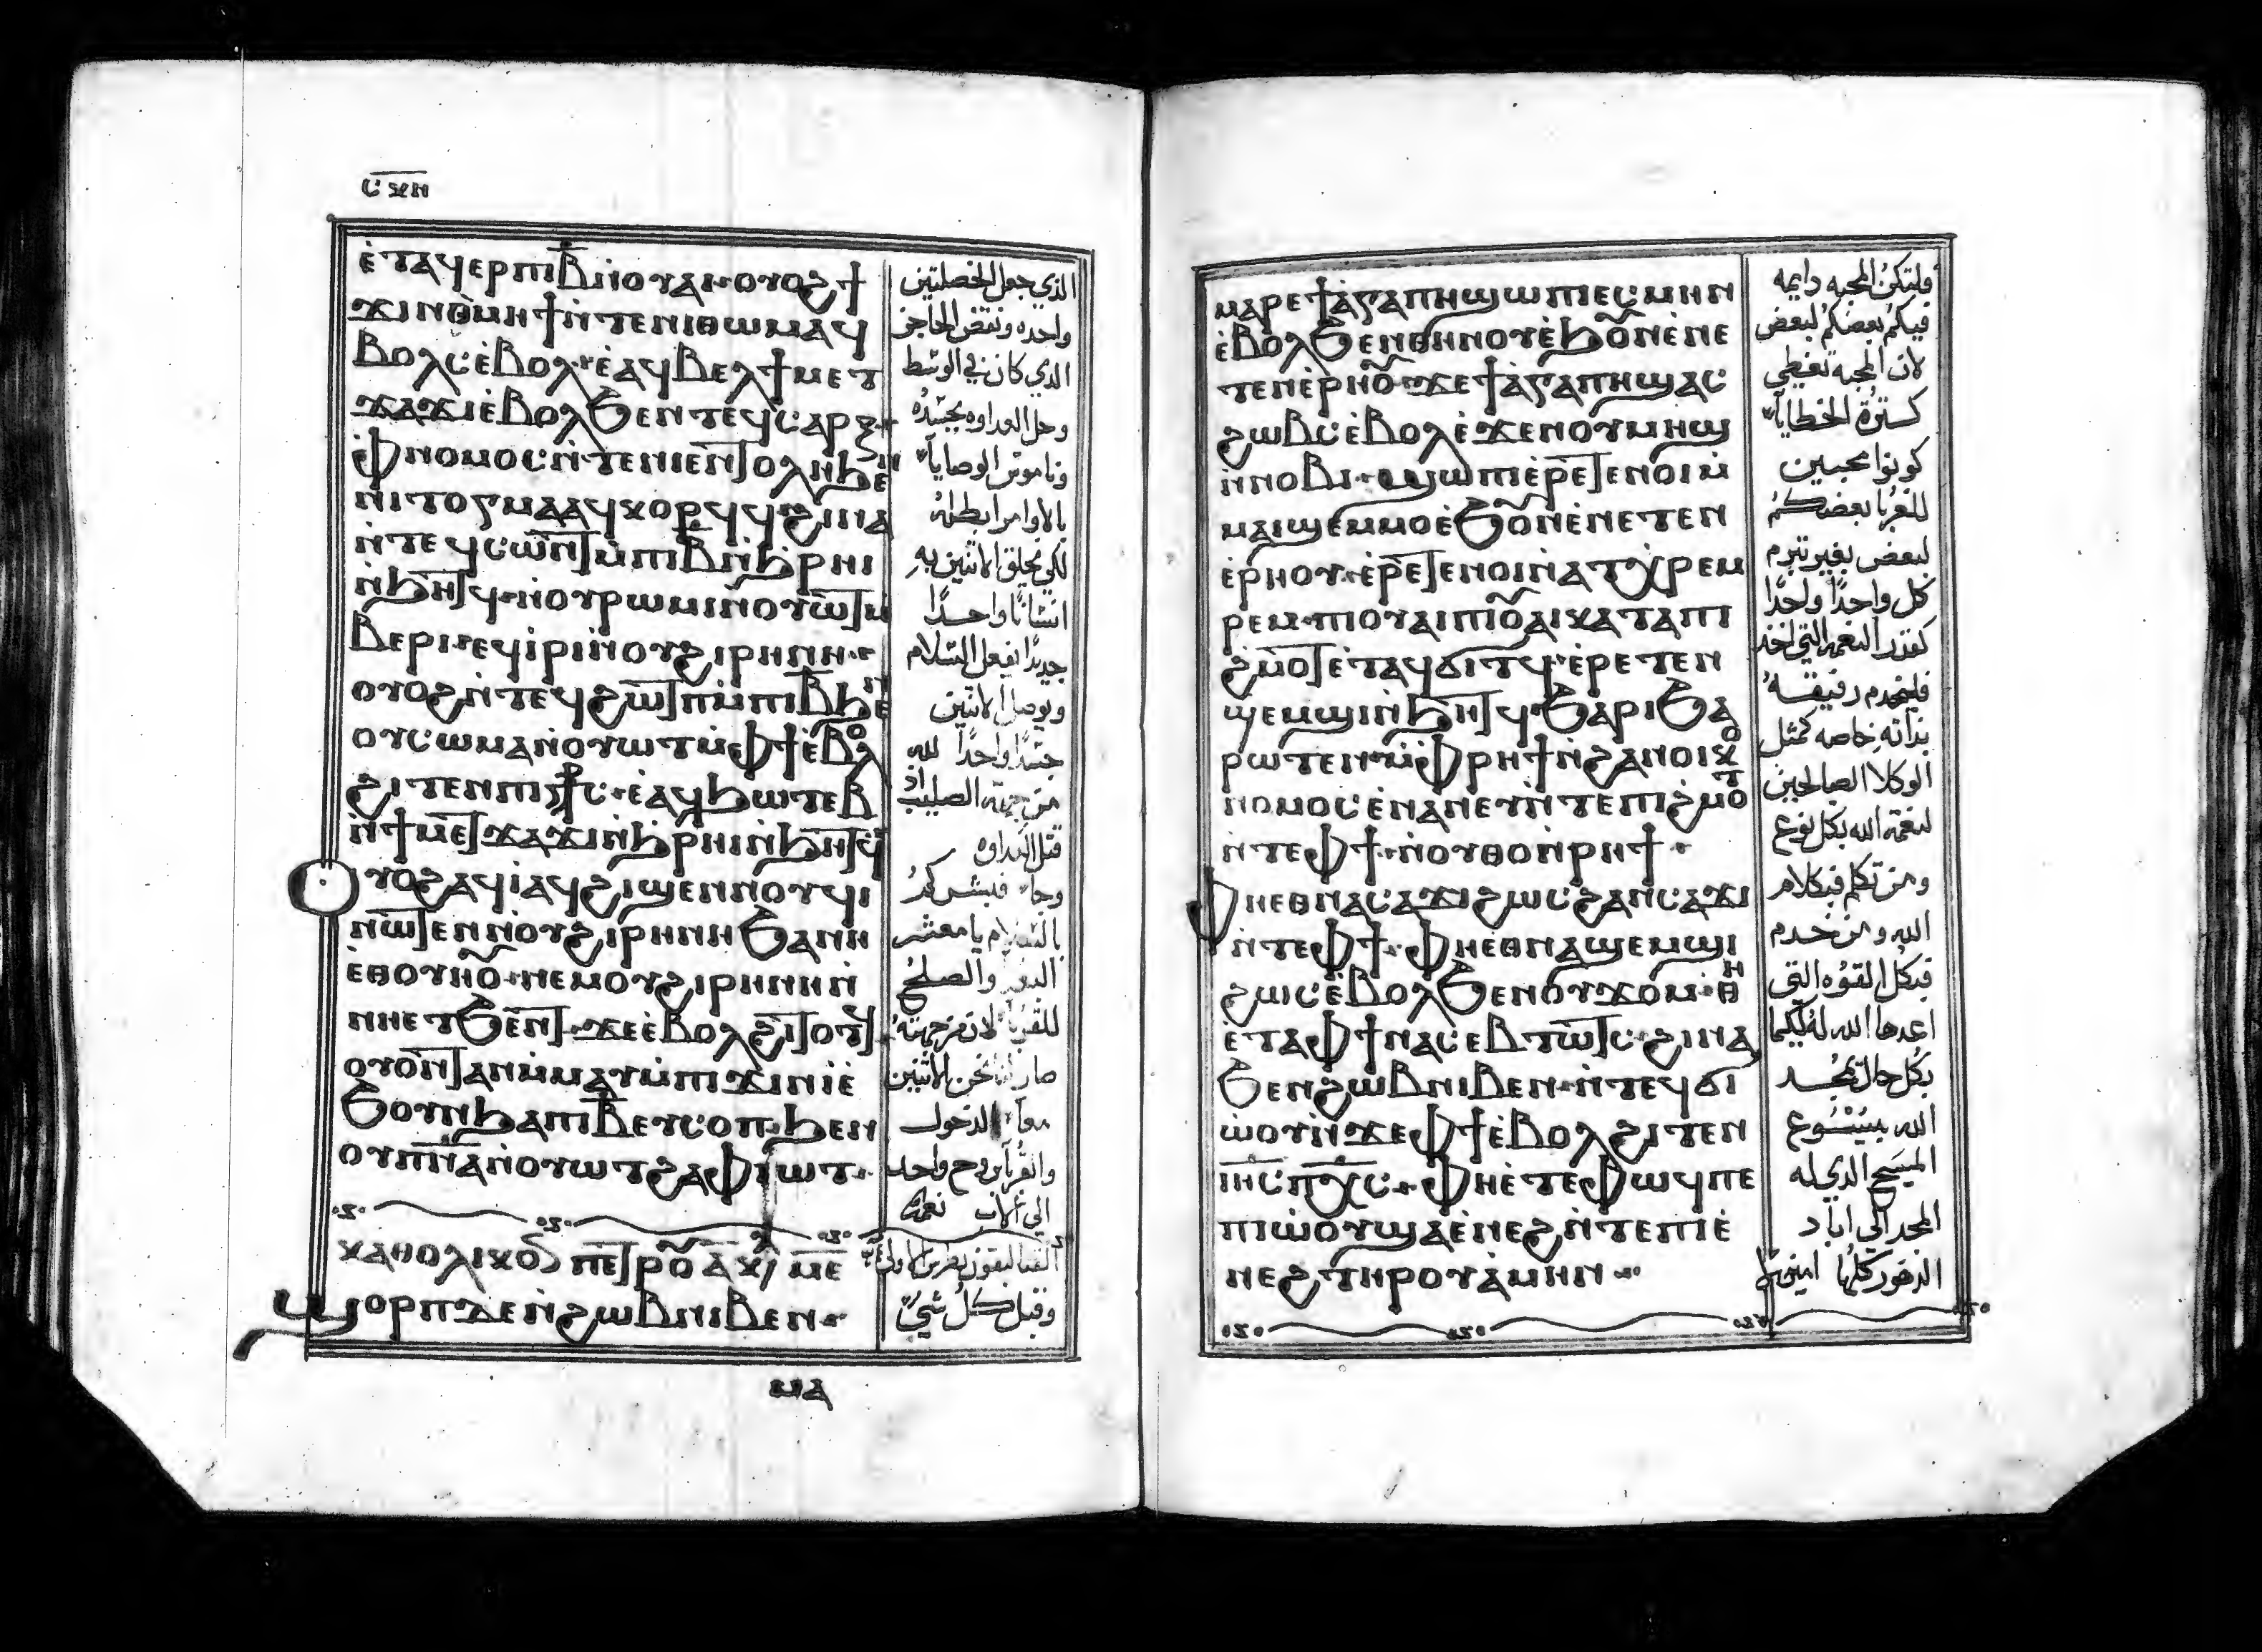 ⲥⲝⲏ
ⲉ̀ⲧⲁϥⲉⲣⲡⲓⲃ̅ⲛ̀ⲟⲩⲁⲓ ⲟⲩⲟϩϯ
ϫⲓⲛⲑⲙⲏϯⲛ̀ⲧⲉⲛⲓⲑⲱⲙⲁϥ
ⲃⲟⲗⲥⲉ̀ⲃⲟⲗ ⲉ̀ⲁϥⲃⲉⲗϯⲙⲉⲧ
ϫⲁϫⲓⲉ̀ⲃⲟⲗϧⲉⲛⲧⲉϥⲥⲁⲣⲝ
ⲫⲛⲟⲙⲟⲥⲛ̀ⲧⲉⲛⲓⲉⲛⲧⲟⲗⲏϧⲉⲛ
ⲛⲓⲧⲟⲅⲙⲁⲁϥⲕⲟⲣϥϥ ϩⲓⲛⲁ
ⲛ̀ⲧⲉϥⲥⲱⲛⲧⲙ̀ⲡⲓⲃ̅ⲛ̀ϧⲣⲏⲓ
ⲛ̀ϧⲏⲧϥ ⲛ̀ⲟⲩⲣⲱⲙⲓⲛ̀ⲟⲩⲱⲧⲙ
ⲃⲉⲣⲓ ⲉϥⲓⲣⲓⲛ̀ⲟⲩϩⲓⲣⲏⲛⲏ
ⲟⲩⲟϩⲛ̀ⲧⲉϥϩⲱⲧⲡⲙ̀ⲡⲓⲃ̅ϧⲉⲛ
ⲟⲩⲥⲱⲙⲁⲛ̀ⲟⲩⲱⲧⲙ̀ⲫϯⲉ̀ⲃⲟⲗ
ϩⲓⲧⲉⲛⲡⲓⲥ⳨ⲥ ⲉ̀ⲁϥϧⲱⲧⲉⲃ
ⲛ̀ϯⲙⲉⲧϫⲁϫⲓⲛ̀ϧⲣⲏⲓⲛ̀ϧⲏⲧϥ
ⲟⲩⲟϩⲁϥⲓ̀ⲁϥϩⲓϣⲉⲛⲛⲟⲩϥⲓ
ⲛⲱⲧⲉⲛⲛ̀ⲟⲩϩⲓⲣⲏⲛⲏϧⲁⲛⲏ
ⲉⲑⲟⲩⲏⲟⲩ ⲛⲉⲙⲟⲩϩⲓⲣⲏⲛⲏⲛ̀
ⲛⲏⲉⲧϧⲉⲛⲧ ϫⲉⲉ̀ⲃⲟⲗϩⲓⲧⲟⲧϥ
ⲟⲩⲟⲛⲧⲁⲛⲙ̀ⲙⲁⲩⲙ̀ⲡⲓϫⲓⲛⲓ̀ⲉ̀
ϧⲟⲩⲛϧⲁⲡⲓⲃ̅ⲉⲩⲥⲟⲡ ϧⲉⲛ
ⲟⲩⲡⲛ̅ⲁ̅ⲛ̀ⲟⲩⲱⲧϩⲁⲫⲓⲱⲧ
ⲕⲁⲑⲟⲗⲓⲕⲟⲛ ⲡⲉⲧⲣⲟⲩ ⲁ ⲕ︦ⲉ ⲙⲉ
ϣⲟⲣⲡⲇⲉⲛ̀ϩⲱⲃⲛⲓⲃⲉⲛ
الذي جعل الخصلتين
واحده ونقض الحاجز
الذي كان في الوسط
وحل العداوه بجسده
وناموس الوصايا
بالاوامر ابطله
لكي يخلق الاثنين به
انسانًا واحدًا
جديدًا يفعل السلام
ويوصل الاثنين
جسدًا واحدًا لله
من جهة الصليب اذ
قتل العداوه
وجاء فبشركم
بالسلام يا معشر
البعد والصلح
للقربا لان من جهته
صار لنا نحن الاثنين
معًا الدخول
والقربان بروح واحد
الي الاب نعمة
وقبل كل شيء
ⲙⲁⲣⲉϯⲁ̀ⲅⲁⲡⲏϣⲱⲡⲓⲉⲥⲙⲏⲛ
ⲉ̀ⲃⲟⲗϧⲉⲛⲑⲏⲛⲟⲩⲉ̀ϧⲟⲩⲛⲉ̀ⲛⲉ
ⲧⲉⲛⲉ̀ⲣⲏⲟⲩ ϫⲉϯⲁ̀ⲅⲁⲡⲏϣⲁⲥ
ϩⲱⲃⲥⲉ̀ⲃⲟⲗⲉ̀ϫⲉⲛⲟⲩⲙⲏϣ
ⲛ̀ⲛⲟⲃⲓ ϣⲱⲡⲓⲉ̀ⲣⲉⲧⲉⲛⲟⲓⲙ̀
ⲙⲁⲓϣⲉⲙⲙⲟⲉ̀ϧⲟⲩⲛⲉ̀ⲛⲉⲧⲉⲛ
ⲉ̀ⲣⲏⲟⲩ ⲉ̀ⲣⲉⲧⲉⲛⲟⲓⲛ̀ⲁⲧⲭⲣⲉⲙ
ⲣⲉⲙ ⲡⲓⲟⲩⲁⲓⲡⲓⲟⲩⲁⲓⲕⲁⲧⲁⲡⲓ
ϩⲙⲟⲧⲉ̀ⲧⲁϥϭⲓⲧϥ ⲉ̀ⲣⲉⲧⲉⲛ
ϣⲉⲙϣⲓⲛ̀ϧⲏⲧϥϧⲁⲣⲓϧⲁ
ⲣⲱⲧⲉⲛ ⲙ̀ⲫⲣⲏϯⲛ̀ϩⲁⲛⲟⲓⲕⲟ
ⲛⲟⲙⲟⲥⲉ̀ⲛⲁⲛⲉⲩⲛ̀ⲧⲉⲡⲓϩⲙⲟⲧ
ⲛ̀ⲧⲉⲫϯ ⲛ̀ⲟⲩⲑⲟⲛ̀ⲣⲏϯ
ⲫⲏⲉⲑⲛⲁⲥⲁϫⲓϩⲱⲥϩⲁⲛⲥⲁϫⲓ
ⲛ̀ⲧⲉⲫϯ ⲫⲏⲉⲑⲛⲁϣⲉⲙϣⲓ
ϩⲱⲥⲉ̀ⲃⲟⲗϧⲉⲛⲟⲩϫⲟⲙ ⲑⲏ
ⲉ̀ⲧⲁⲫϯⲛⲁⲥⲉⲃⲧⲱⲧⲥ ϩⲓⲛⲁ
ϧⲉⲛϩⲱⲃⲛⲓⲃⲉⲛ ⲛ̀ⲧⲉϥϭⲓ
ⲱ̀ⲟⲩⲛ̀ϫⲉⲫϯⲉ̀ⲃⲟⲗϩⲓⲧⲉⲛ
ⲓⲏ̅ⲥ̅ⲡⲭ̅ⲥ̅ ⲫⲏⲉ̀ⲧⲉⲫⲱϥⲡⲉ
ⲡⲓⲱ̀ⲟⲩϣⲁⲉ̀ⲛⲉϩⲛ̀ⲧⲉⲡⲓⲉ̀
ⲛⲉϩⲧⲏⲣⲟⲩⲁ̀ⲙⲏⲛ
فلتكن المحبه دايمه
فيكم بعضكم لبعض
لان المحبة تغطي
كسترة الخطايا
كونوا محبين
للغربا بعضكم
لبعض بغير تبرم
كل واحدًا واحدًا
كقدر النعمه التي اخذ
فليخدم رفيقه
بذاته خاصه كمثل
الوكلا الصالحين
لنعمة الله بكل نوع
ومن تكلم فبكلام
الله ومن خدم
فبكل القوه التي
اعدها الله له لكيما
بكل حال يمجد
الله بيسوع
المسيح الذي له
المجد الي اباد
الدهور كلها امين